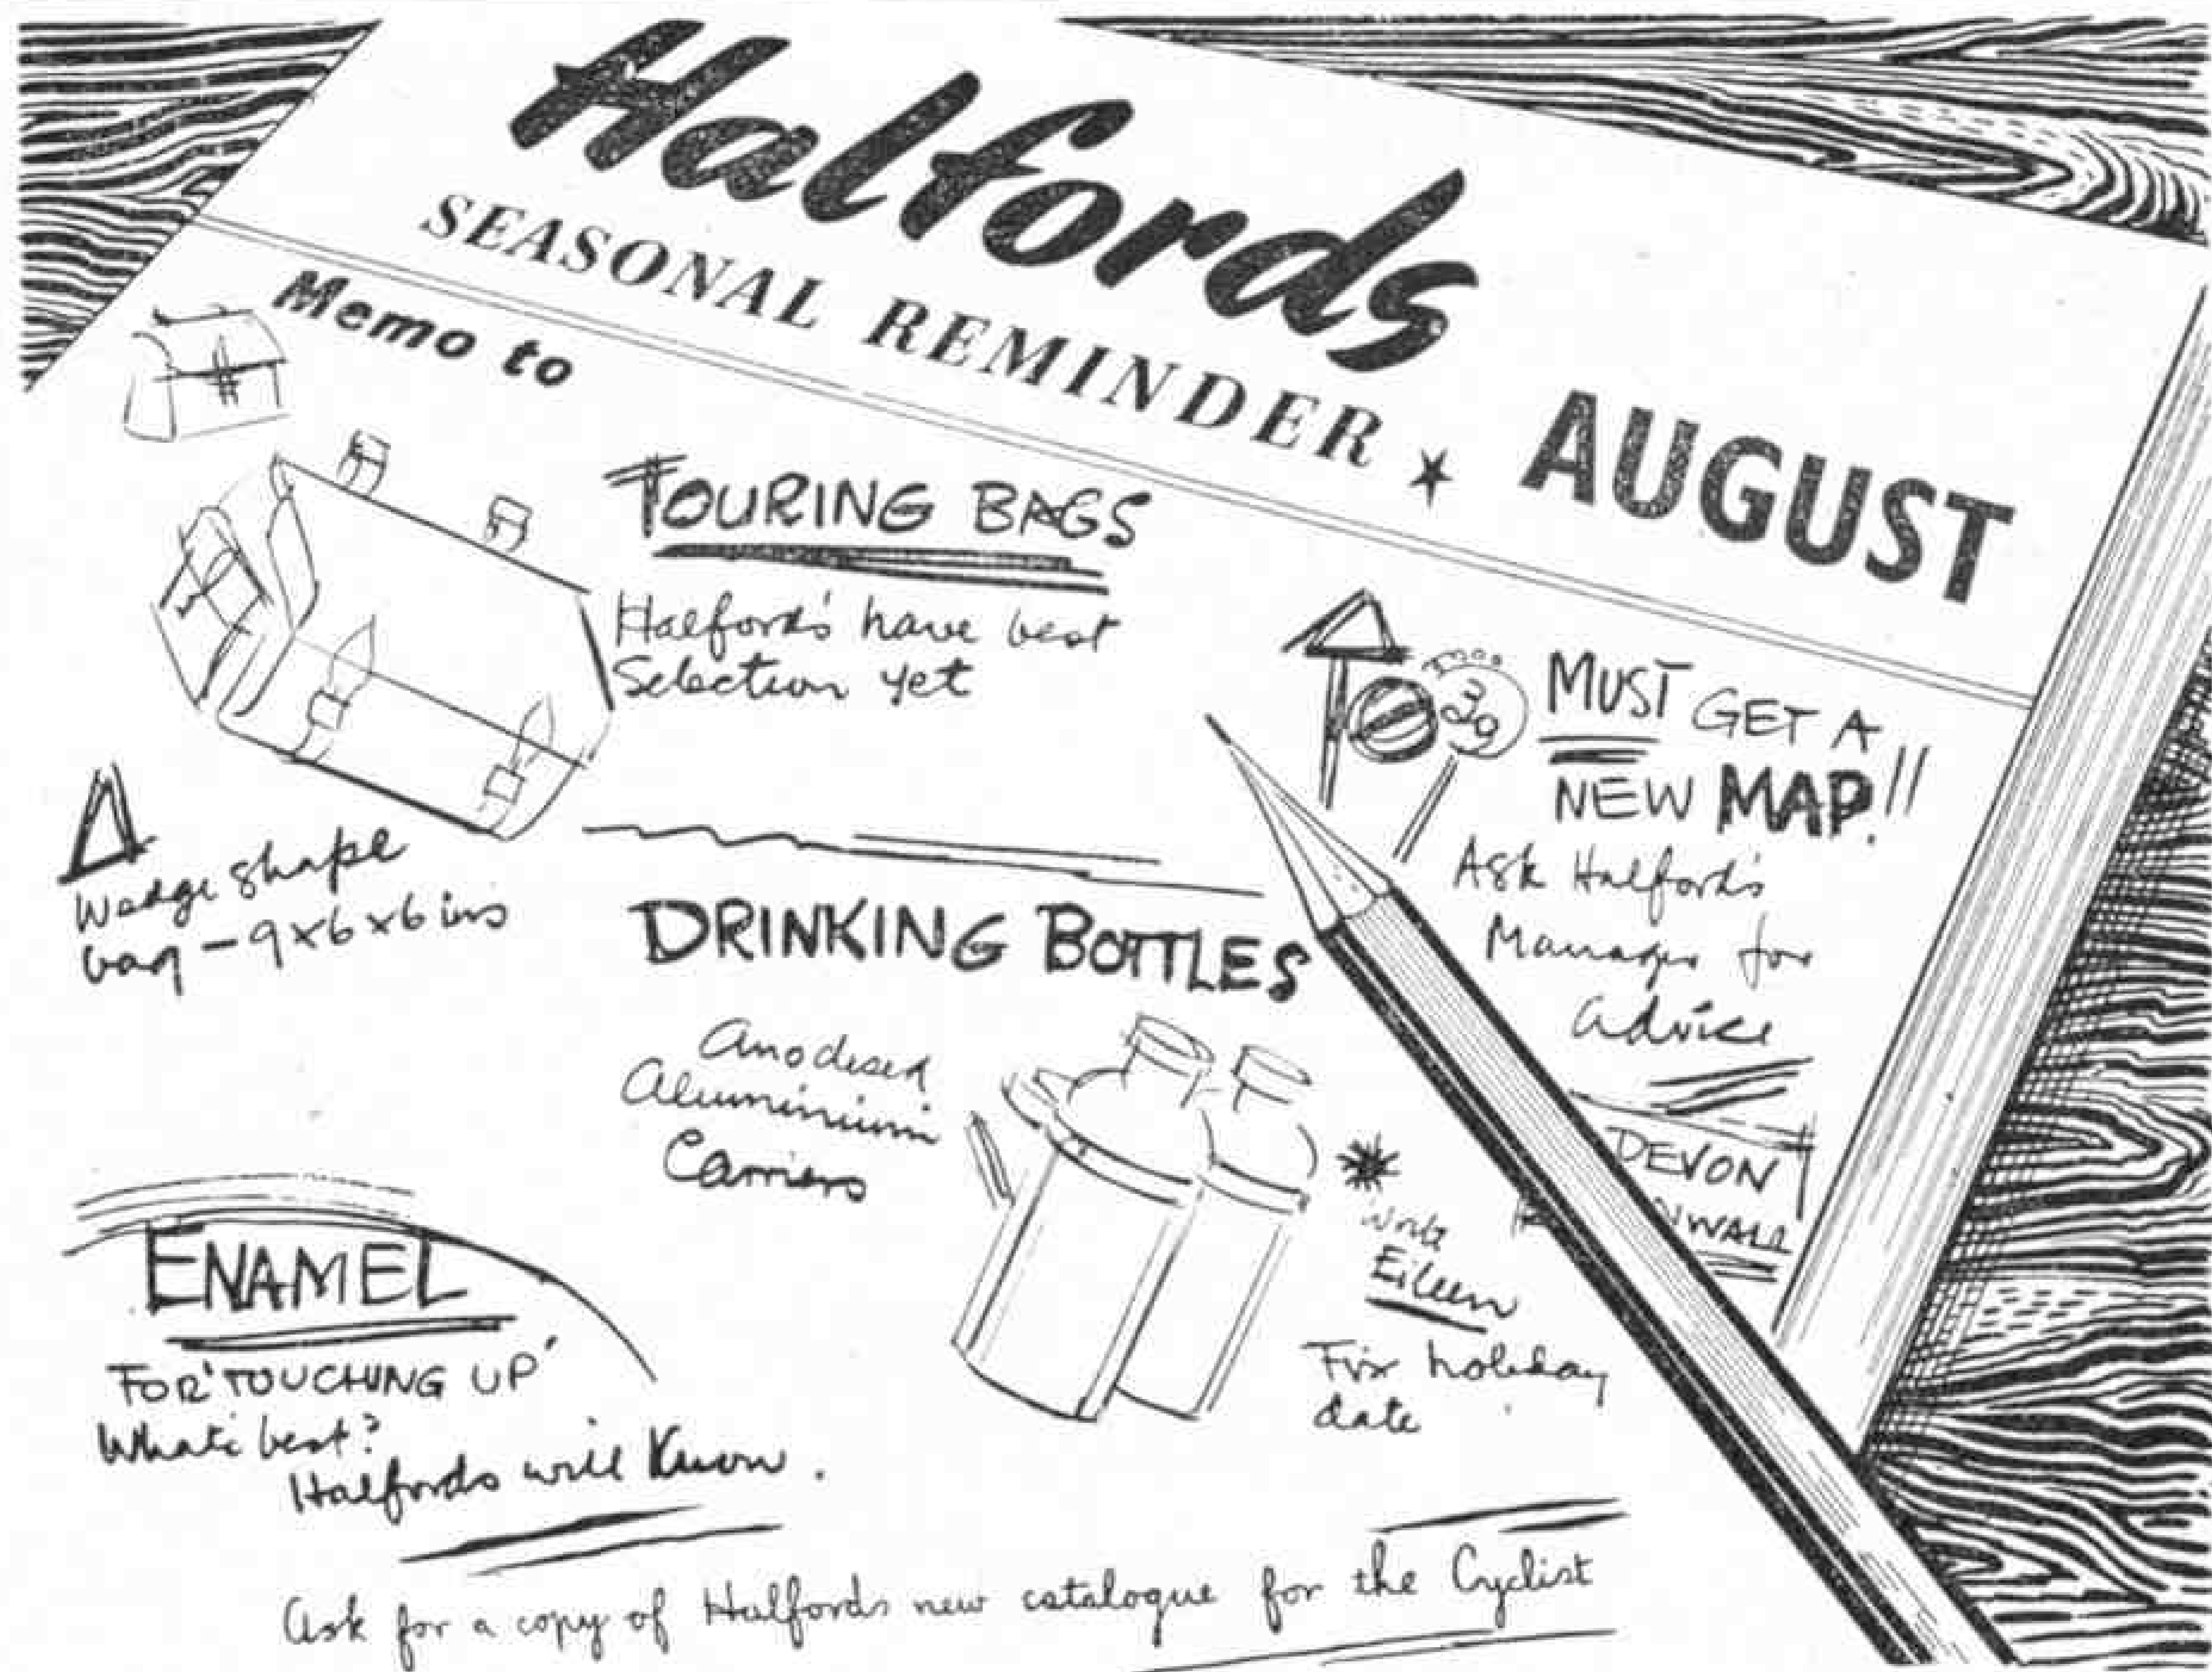 Halfords
SEASONAL REMINDER ★ AUGUST
Memo to
TOURING BAGS
Halford's have best
Selection yet
Wedge shape
bag - 9x6x6 ins
MUST GET A
NEW MAP!!
Ask Halford's
Manager for
advice
DRINKING BOTTLES
Anodised
Aluminium
Carriers
DEVON
NWALL
Write
Eileen
Fix holiday
date
ENAMEL
FOR 'TOUCHING UP'
What's best?
Halfords will Know.
Ask for a copy of Halfords new catalogue for the Cyclist